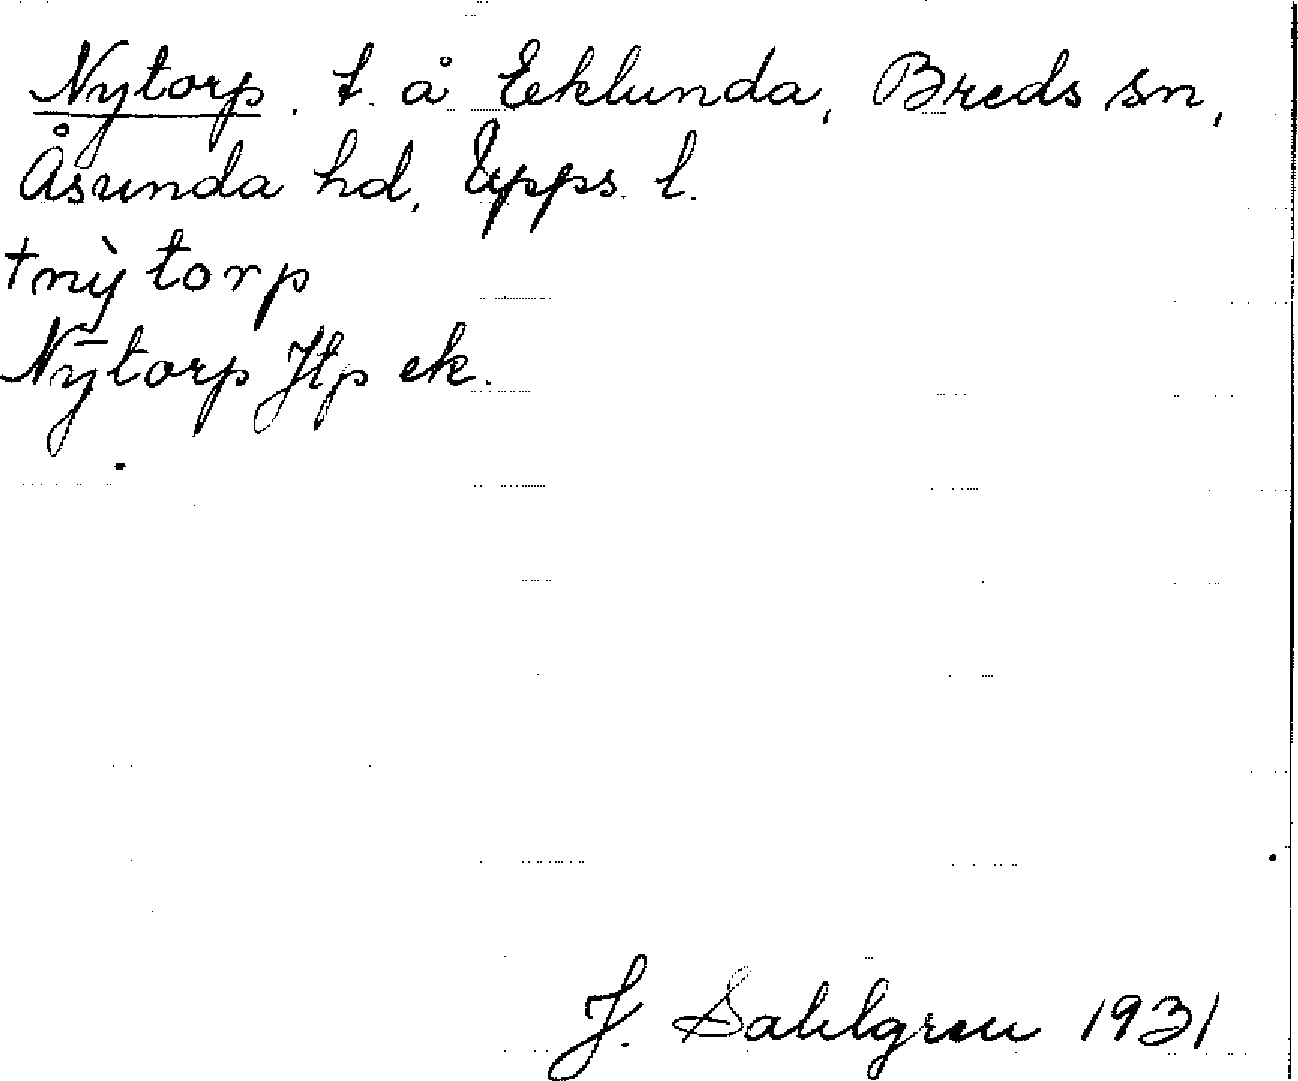 Nytorp. t. å Eeklunda, Breds sn,
Åsunda hd, Upps. l.
†nỳtorp
Nȳtorp Jtp ek.
J. Sahlgren 1931